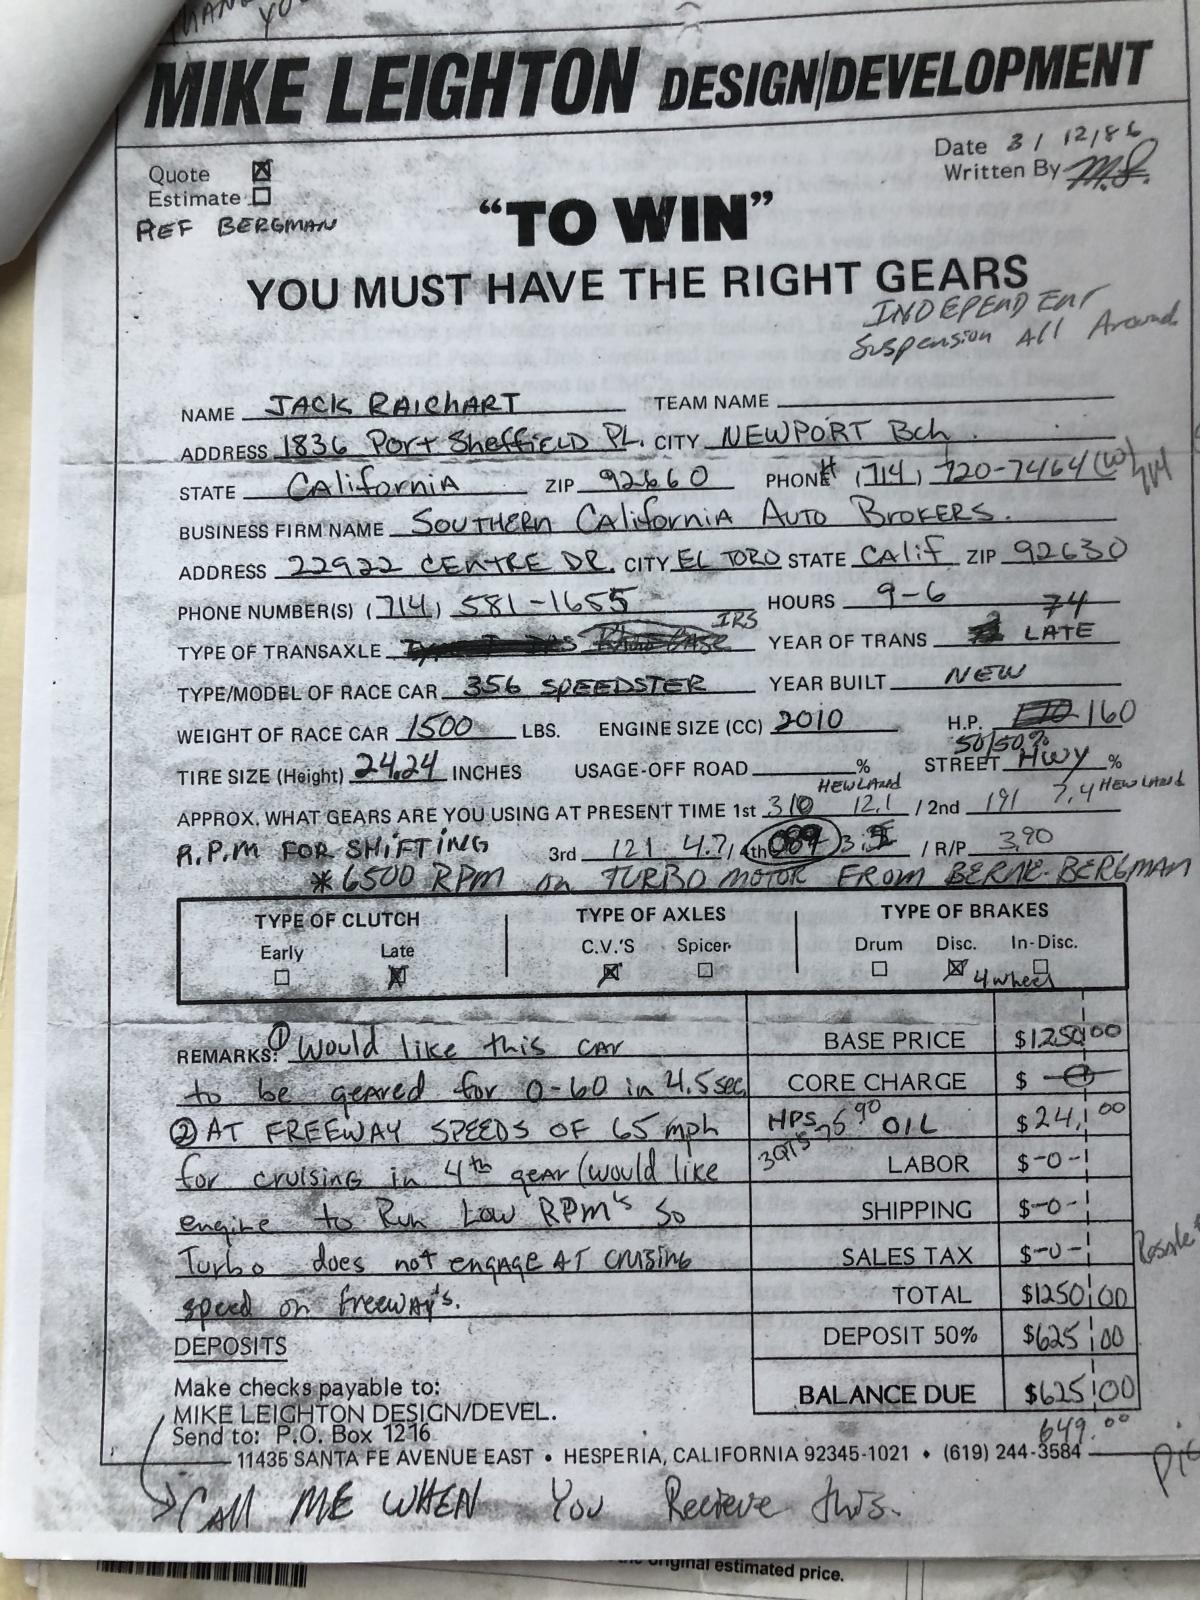 YOU
MIKE LEIGHTON DESIGN/DEVELOPMENT
Quote ☒ Date 3/12/86
Estimate ☐ Written By M.L.
REF BERGMAN
"TO WIN"
YOU MUST HAVE THE RIGHT GEARS
INDEPENDENT
Suspension All Around
NAME JACK RAICHART TEAM NAME
ADDRESS 1836 Port Sheffield PL. CITY NEWPORT Bch.
STATE California ZIP 92660 PHONE# (714) 720-7464 (W)
BUSINESS FIRM NAME SOUTHERN California Auto Brokers.
ADDRESS 22922 CENTRE DR. CITY EL TORO STATE Calif ZIP 92630
PHONE NUMBER(S) (714) 581-1655 HOURS 9-6
TYPE OF TRANSAXLE IRS YEAR OF TRANS 74 LATE
TYPE/MODEL OF RACE CAR 356 SPEEDSTER YEAR BUILT NEW
WEIGHT OF RACE CAR 1500 LBS. ENGINE SIZE (CC) 2010 H.P. 160
TIRE SIZE (Height) 24.24 INCHES USAGE-OFF ROAD % STREET 50/50% Hwy %
APPROX. WHAT GEARS ARE YOU USING AT PRESENT TIME 1st 310 HEWLAND 12.1 / 2nd 191 7.4 HEWLAND
R.P.M FOR SHIFTING 3rd 121 4.7 / 4th 089 / R/P 3.90
* 6500 RPM on TURBO MOTOR FROM BERNE-BERGMAN
TYPE OF CLUTCH TYPE OF AXLES TYPE OF BRAKES
Early Late C.V.'S Spicer Drum Disc. In-Disc.
☐ ☒ ☒ ☐ ☐ ☒ ☐
4 wheel
REMARKS: ① Would like this car
to be geared for 0-60 in 4.5 sec
② AT FREEWAY SPEEDS OF 65 mph
for cruising in 4th gear (would like
engine to Run Low RPM's so
Turbo does not engage AT cruising
speed on freeway's.
BASE PRICE $1250.00
CORE CHARGE $ -0-
HPS 75 90 OIL $24.00
3QTS
LABOR $-0-
SHIPPING $-0-
SALES TAX $-0- Resale
TOTAL $1250.00
DEPOSIT 50% $625.00
BALANCE DUE $625.00
649.00
DEPOSITS
Make checks payable to:
MIKE LEIGHTON DESIGN/DEVEL.
Send to: P.O. Box 1216
11435 SANTA FE AVENUE EAST • HESPERIA, CALIFORNIA 92345-1021 • (619) 244-3584
CAll ME WHEN You Recieve this.
original estimated price.